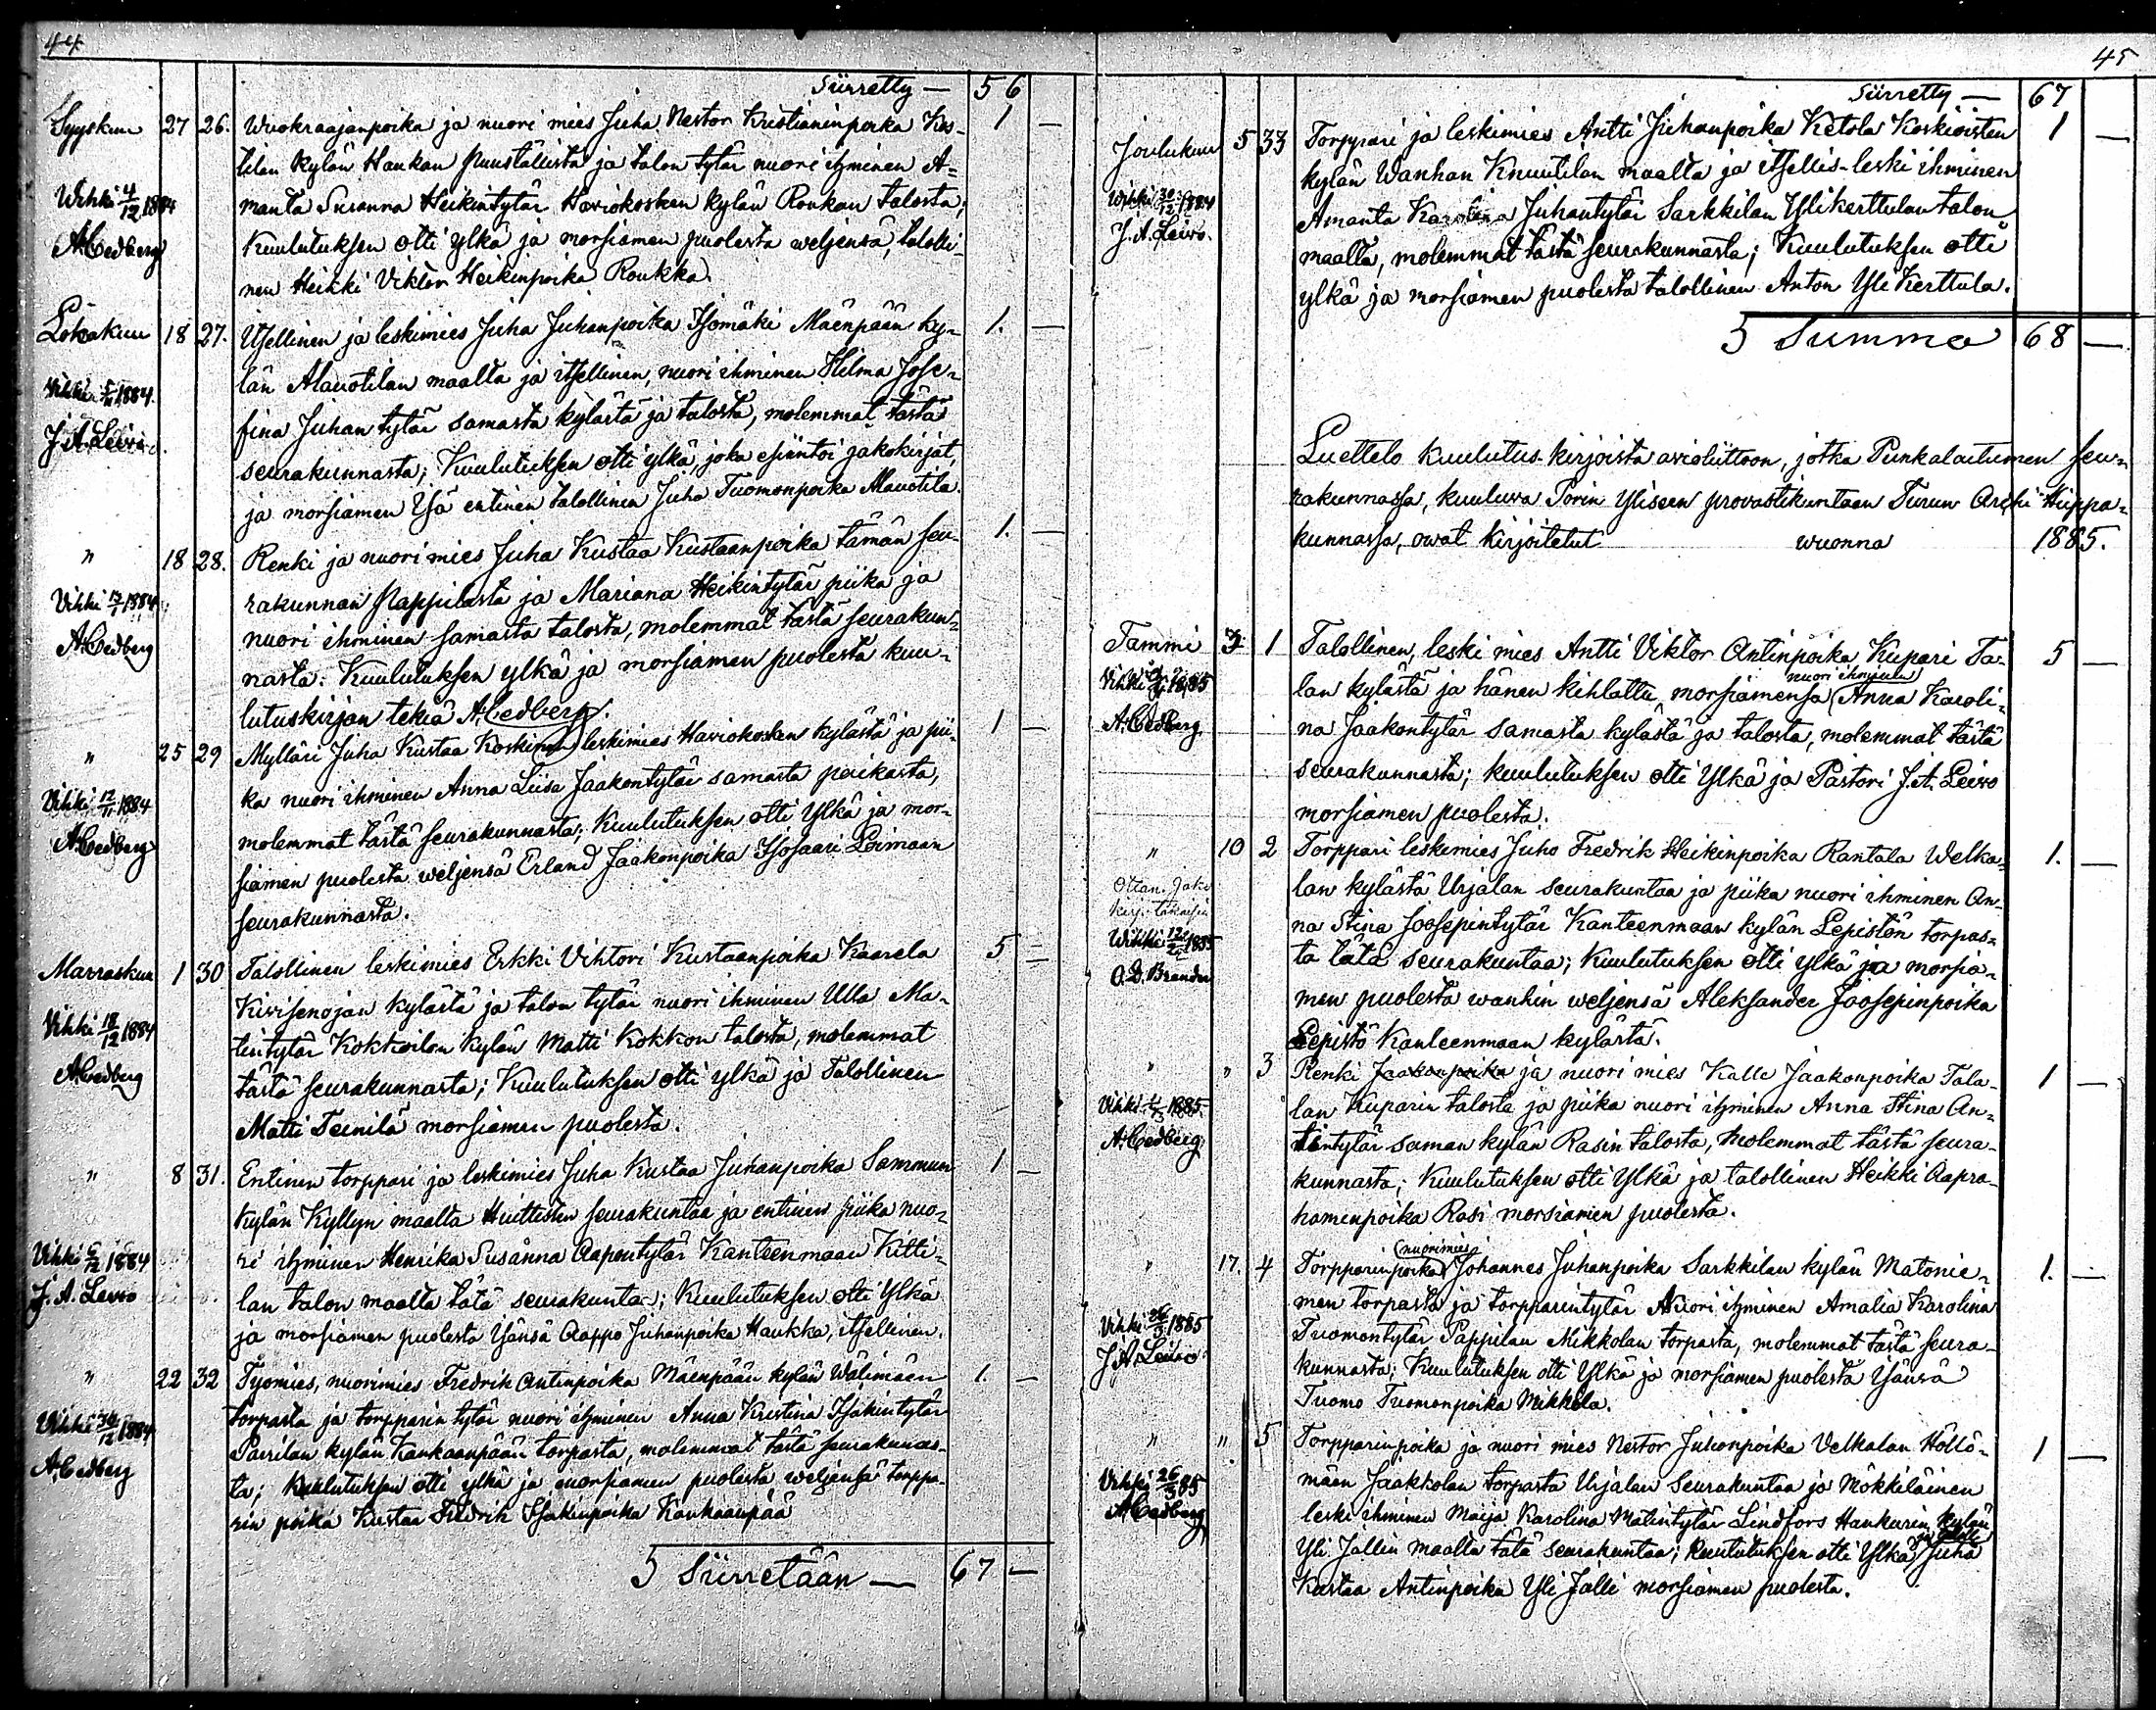 44
Siirretty — 56
Syyskuu 27 26. Wuokraajanpoika ja nuori mies Juha Nestor Kristianinpoika Kos- 1 —
tilan kylän Haukan puustellista ja talon tytär nuori ihminen A-
Vihki 4/12 1884 manta Susanna Heikintytär Haviokosken kylän Roukan talosta;
A. Cedberg Kuulutuksen otti ylkä ja morsiamen puolesta weljensä, talolli-
nen Heikki Viktor Heikinpoika Roukka.
Lokakuu 18 27. Itsellinen ja leskimies Juha Juhanpoika Isomäki Mäenpään ky- 1. —
län Alauotilan maalta ja itsellinen, nuori ihminen Hilma Jose-
Vihki 1884. fina Juhantytär samasta kylästä ja talosta, molemmat tästä
J. A. Leivo. seurakunnasta; Kuulutuksen otti ylkä, joka esiintoi jakokirjat,
ja morsiamen Isä entinen talollinen Juha Tuomonpoika Alauotila.
" 18 28. Renki ja nuori mies Juha Kustaa Kustaanpoika tämän seu- 1. —
Vihki 1884 rakunnan Pappilasta ja Mariana Heikintytär piika ja
A. Cedberg nuori ihminen samasta talosta, molemmat tästä seurakun-
nasta. Kuulutuksen ylkä ja morsiamen puolesta kuu-
lutuskirjan tekiä A. Cedberg.
" 25 29 Mylläri Juha Kustaa Koskinen leskimies Haviokosken kylästä ja pii- 1 —
Vihki 12/11 1884 ka nuori ihminen Anna Liisa Jaakontytär samasta paikasta,
A. Cedberg molemmat tästä seurakunnasta; Kuulutuksen otti Ylkä ja mor-
siamen puolesta weljensä Erland Jaakonpoika Isosaari Loimaan
seurakunnasta.
Marraskuu 1 30 Talollinen leskimies Erkki Vihtori Kustaanpoika Kaarela 5 —
Kivisenojan kylästä ja talon tytär nuori ihminen Ulla Ma-
Vihki 18/12 1884 tintytär Kokkoilan kylän Matti Kokkon talosta, molemmat
A. Cedberg tästä seurakunnasta; Kuulutuksen otti ylkä ja Talollinen
Matti Teinilä morsiamen puolesta.
" 8 31. Entinen torppari ja leskimies Juha Kustaa Juhanpoika Sammun 1 —
kylän Kyllyn maalta Huittisten seurakuntaa ja entinen piika nuo-
Vihki 1884 ri ihminen Henrika Susanna Aapontytär Kanteenmaan Kitti-
J. A. Leivo lan talon maalta tätä seurakuntaa; Kuulutuksen otti Ylkä
ja morsiamen puolesta Isänsä Aappo Juhanpoika Haukka, itsellinen.
" 22 32 Työmies, nuorimies Fredrik Antinpoika Mäenpään kylän Wälimäen 1. —
torpasta ja torpparin tytär nuori ihminen Anna Kristina Isakintytär
Vihki 1884 Parrilan kylän Kankaanpään torpasta, molemmat tästä seurakunnas-
A. Cedberg ta; Kuulutuksen otti ylkä ja morsiamen puolesta weljensä torppa-
rin poika Kustaa Fredrik Isakinpoika Kankaanpää
Siirretään — 67 —
45
Siirretty — 67
Joulukuu 5 33 Torppari ja leskimies Antti Juhanpoika Ketola Koskioisten 1 —
kylän Wanhan Knuutilan maalta ja itsellis-leski ihminen
Vihki 30/12 1884 Amanta Karolina Juhantytär Sarkkilan Ylikerttulan talon
J. A. Leivo. maalta, molemmat tästä seurakunnasta; Kuulutuksen otti
ylkä ja morsiamen puolesta talollinen Anton Yli Kerttula.
Summa 68 —
Luettelo kuulutus-kirjoista avioliittoon, jotka Punkalaitumen seu-
rakunnassa, kuuluva Porin Yliseen provastikuntaan Turun Arki Hiippa-
kunnassa, owat kirjoitetut wuonna 1885.
Tammi 3 1 Talollinen, leski mies Antti Viktor Antinpoika Kupari Ta- 5 —
nuori ihminen
Vihki 1885 lan kylästä ja hänen kihlattu morsiamensa Anna Karoli-
A. Cedberg na Jaakontytär samasta kylästä ja talosta, molemmat tästä
seurakunnasta; kuulutuksen otti Ylkä ja Pastori J. A. Leivo
morsiamen puolesta.
" 10 2 Torppari leskimies Juho Fredrik Heikinpoika Rantala Welka- 1. —
Ottan. Jako lan kylästä Urjalan seurakuntaa ja piika nuori ihminen An-
kirj. takaisin na Stina Joosepintytär Kanteenmaan kylän Lepistön torpas-
Wihki 1885 ta tätä seurakuntaa; Kuulutuksen otti ylkä ja morsia-
Brander men puolesta wanhin weljensä Aleksander Joosepinpoika
Lepistö Kanteenmaan kylästä.
" " 3 Renki Jaakonpoika ja nuori mies Kalle Jaakonpoika Tala- 1 —
Vihki 1885. lan Kuparin talosta ja piika nuori ihminen Anna Stina An-
A. Cedberg tintytär saman kylän Rasin talosta, molemmat tästä seura-
kunnasta; Kuulutuksen otti Ylkä ja talollinen Heikki Aapra-
haminpoika Rasi morsiamen puolesta.
nuorimies
" 17. 4 Torpparinpoika Johannes Juhanpoika Sarkkilan kylän Matonie- 1. —
men torpasta ja torpparintytär Nuori ihminen Amalia Karolina
Vihki 1885 Tuomontytär Pappilan Mikkolan torpasta, molemmat tästä seura-
J. A. Leivo kunnasta; Kuulutuksen otti Ylkä ja morsiamen puolesta Isänsä
Tuomo Tuomonpoika Mikkola.
" " 5 Torpparinpoika ja nuori mies Nestor Juhonpoika Velkalan Höllö- 1 —
Vihki 26/3 85 mäen Jaakkolan torpasta Urjalan Seurakuntaa ja Mökkiläinen
A. Cedberg leski ihminen Maija Karolina Matintytär Lindfors Hankurin kylän
Yli Jallin maalta tätä seurakuntaa; Kuulutuksen otti Ylkä Juha
Kustaa Antinpoika Yli Jalli morsiamen puolesta.